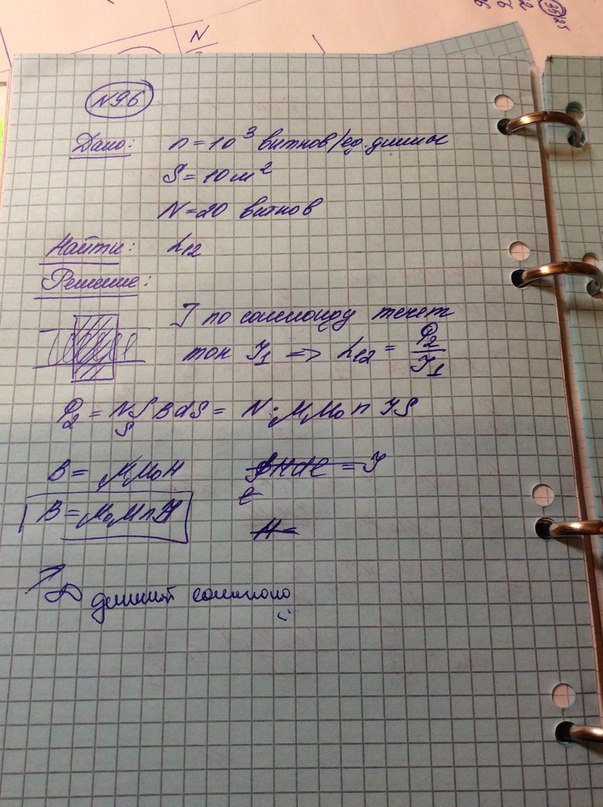 N96
Дано: n = 10³ витков/ед. длины
S = 10 м²
N = 20 витков
Найти: L₁₂
Решение:
I по соленоиду течет
ток I₁ => L₁₂ = Ф₂/I₁
Ф₂ = N∫BdS = N·μμ₀nIS
S
B = μμ₀H
∮Hdl = I
l
B = μ₀μnI
H =
∞ длинный
N